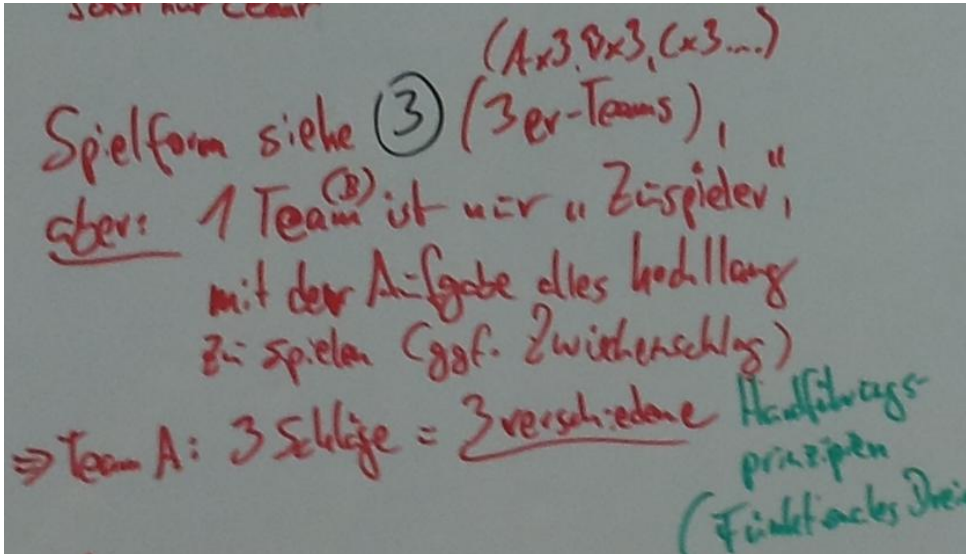 sonst nur
(Ax3, Bx3, Cx3....)
Spielform siehe ③ (3er-Teams),
aber: 1 Team (B) ist nur „Zuspieler“,
mit der Aufgabe alles hoch/lang
zu spielen (ggf. Zwischenschlag)
⇒ Team A: 3 Schläge = 3 verschiedene Handführungs-
prinzipien
(Funktionales Drei